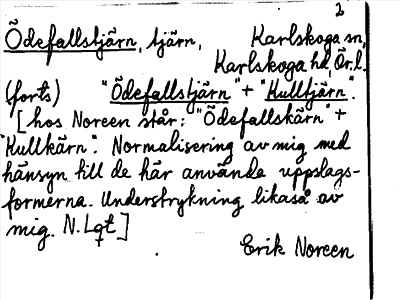 2
Ödefallstjärn, tjärn, Karlskoga sn,
Karlskoga hd, Ör.l.
(forts) "Ödefallstjärn" + "Kulltjärn".
[hos Noreen står: "Ödefallskärn" +
"Kullkärn". Normalisering av mig med
hänsyn till de här använda uppslags-
formerna. Understrykning likaså av
mig. N. Lgt]
Erik Noreen